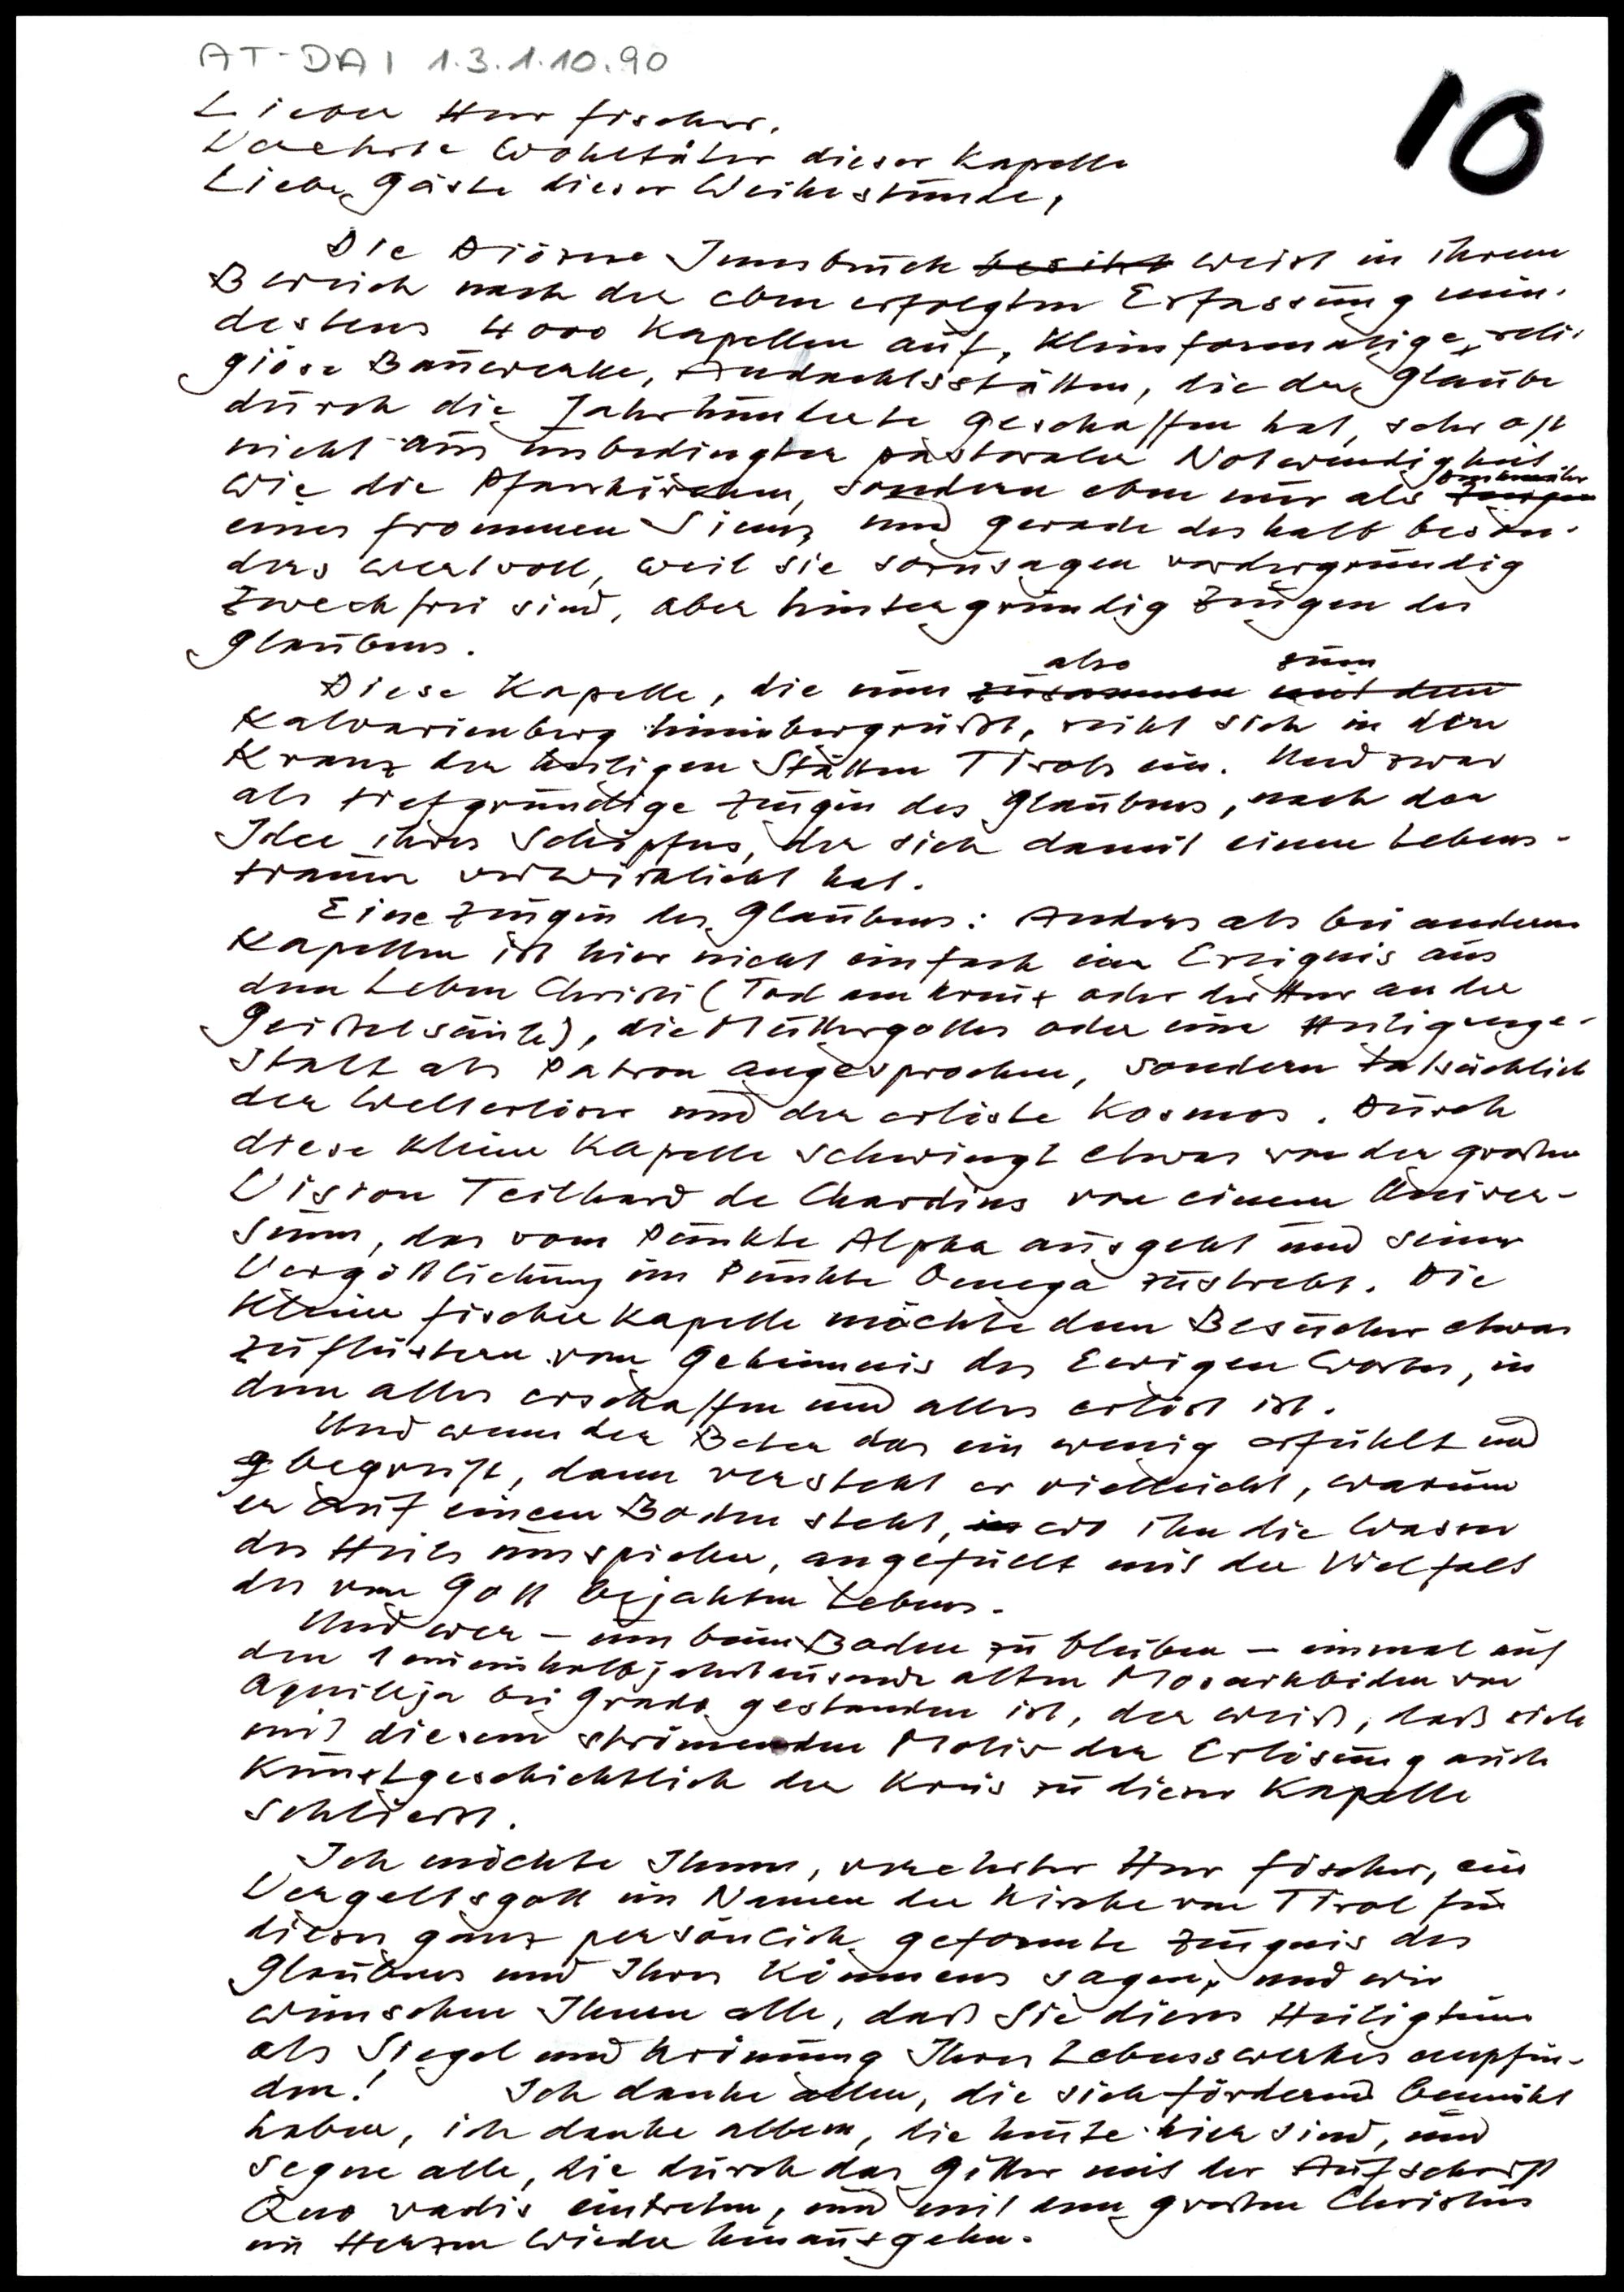 AT-DAI 1.3.1.10.90
10
Lieber Herr Fischer,
Verehrte Wohltäter dieser Kapelle
Liebe Gäste dieser Weihestunde,
Die Diözese Innsbruck besitzt weist in ihrem
Bereich nach der eben erfolgten Erfassung min-
destens 4000 Kapellen auf, kleinformatige, reli-
giöse Bauwerke, Andachtsstätten, die der Glaube
durch die Jahrhunderte geschaffen hat, sehr oft
nicht aus unbedingter pastoraler Notwendigkeit
wie die Pfarrkirchen, sondern eben nur als Zeugen
eines frommen Sinns und gerade deshalb beson-
ders wertvoll, weil sie sozusagen vordergründig
zweckfrei sind, aber hintergründig Zeugen des
Glaubens.
also zum
Diese Kapelle, die nun zusammen mit dem
Kalvarienberg hinübergrüßt, reiht sich in den
Kranz der heiligen Stätten Tirols ein. Und zwar
als tiefgründige Zeugin des Glaubens, nach der
Idee ihres Schöpfers, der sich damit einen Lebens-
traum verwirklicht hat.
Eine Zeugin des Glaubens: Anders als bei anderen
Kapellen ist hier nicht einfach ein Ereignis aus
dem Leben Christi (Tod am Kreuz oder der Herr an der
Geißelsäule), die Muttergottes oder eine Heiligenge-
stalt als Patron angesprochen, sondern tatsächlich
der Welterlöser und der erlöste Kosmos. Durch
diese kleine Kapelle schwingt etwas von der großen
Vision Teilhard de Chardins von einem Univer-
sum, das vom Punkte Alpha ausgeht und seiner
Vergöttlichung im Punkte Omega zustrebt. Die
kleine Fischerkapelle möchte dem Besucher etwas
zuflüstern vom Geheimnis des Ewigen Wortes, in
dem alles erschaffen und alles erlöst ist.
Und wenn der Beter das ein wenig erfühlt und
begreift, dann versteht er vielleicht, warum
er auf einem Boden steht, wo ihn die Wasser
des Heils umspielen, angefüllt mit der Vielfalt
des von Gott bejahten Lebens.
Und wer – um beim Boden zu bleiben – einmal auf
den 1 eineinhalbjahrtausende alten Mosaikböden von
Aquileja bei Grado gestanden ist, der weiß, daß sich
mit diesem strömenden Motiv der Erlösung auch
kunstgeschichtlich der Kreis zu dieser Kapelle
schließt.
Ich möchte Ihnen, verehrter Herr Fischer, ein
Vergeltsgott im Namen der Kirche von Tirol für
dieses ganz persönlich geformte Zeugnis des
Glaubens und Ihres Könnens sagen, und wir
wünschen Ihnen alle, daß Sie dieses Heiligtum
als Siegel und Krönung Ihres Lebenswerkes empfin-
den! Ich danke allen, die sich fördernd bemüht
haben, ich danke allen, die heute hier sind, und
segne alle, die durch das Gitter mit der Aufschrift
Quo vadis eintreten, und mit dem großen Christus
im Herzen wieder hinausgehen.